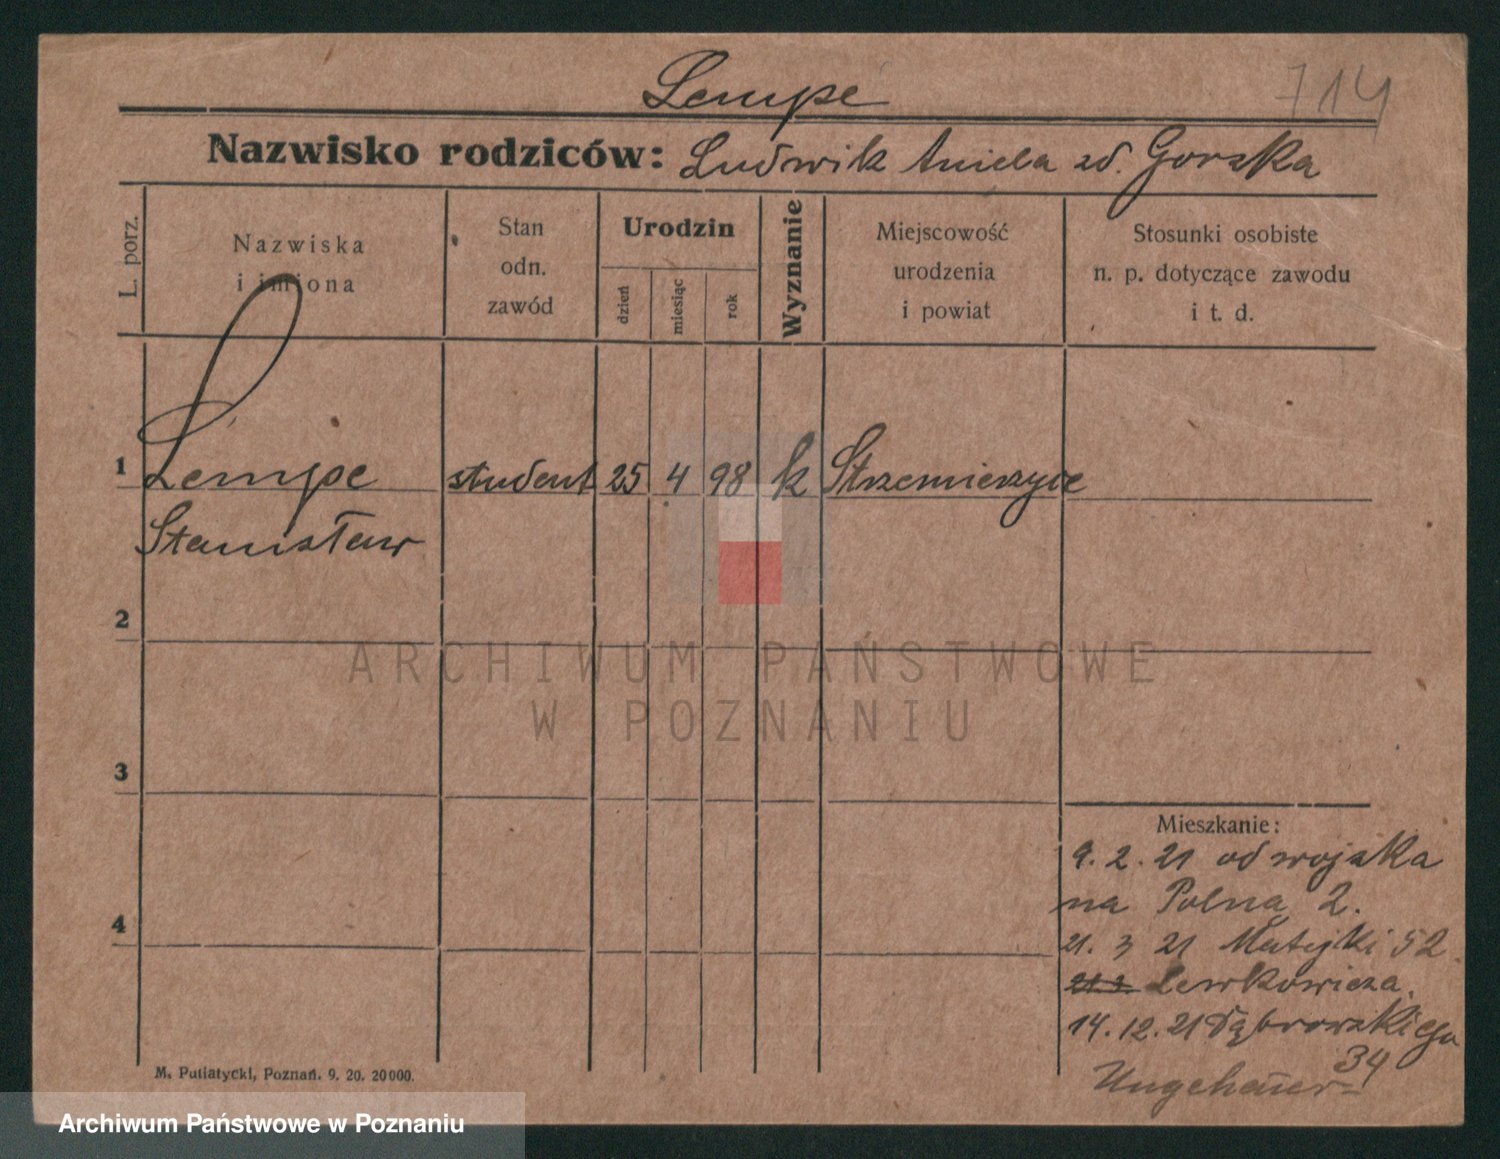 Lempe
714
Nazwisko rodziców: Ludwik Aniela zd. Gorska
L. porz.
Nazwiska
i imiona
Stan
odn.
zawód
Urodzin
dzień
miesiąc
rok
Wyznanie
Miejscowość
urodzenia
i powiat
Stosunki osobiste
n. p. dotyczące zawodu
i t. d.
1 Lempe student 25 4 98 k Strzemieszyce
Stanisław
2
3
4
Mieszkanie:
9. 2. 21 od wojska
na Polna 2.
21. 3 21 Matejki 52.
Lewkowicza.
14. 12. 21 Dąbrowskiego
34
Ungeheuer
M. Putiatycki, Poznań. 9. 20. 20000.
ARCHIWUM PAŃSTWOWE
W POZNANIU
Archiwum Państwowe w Poznaniu